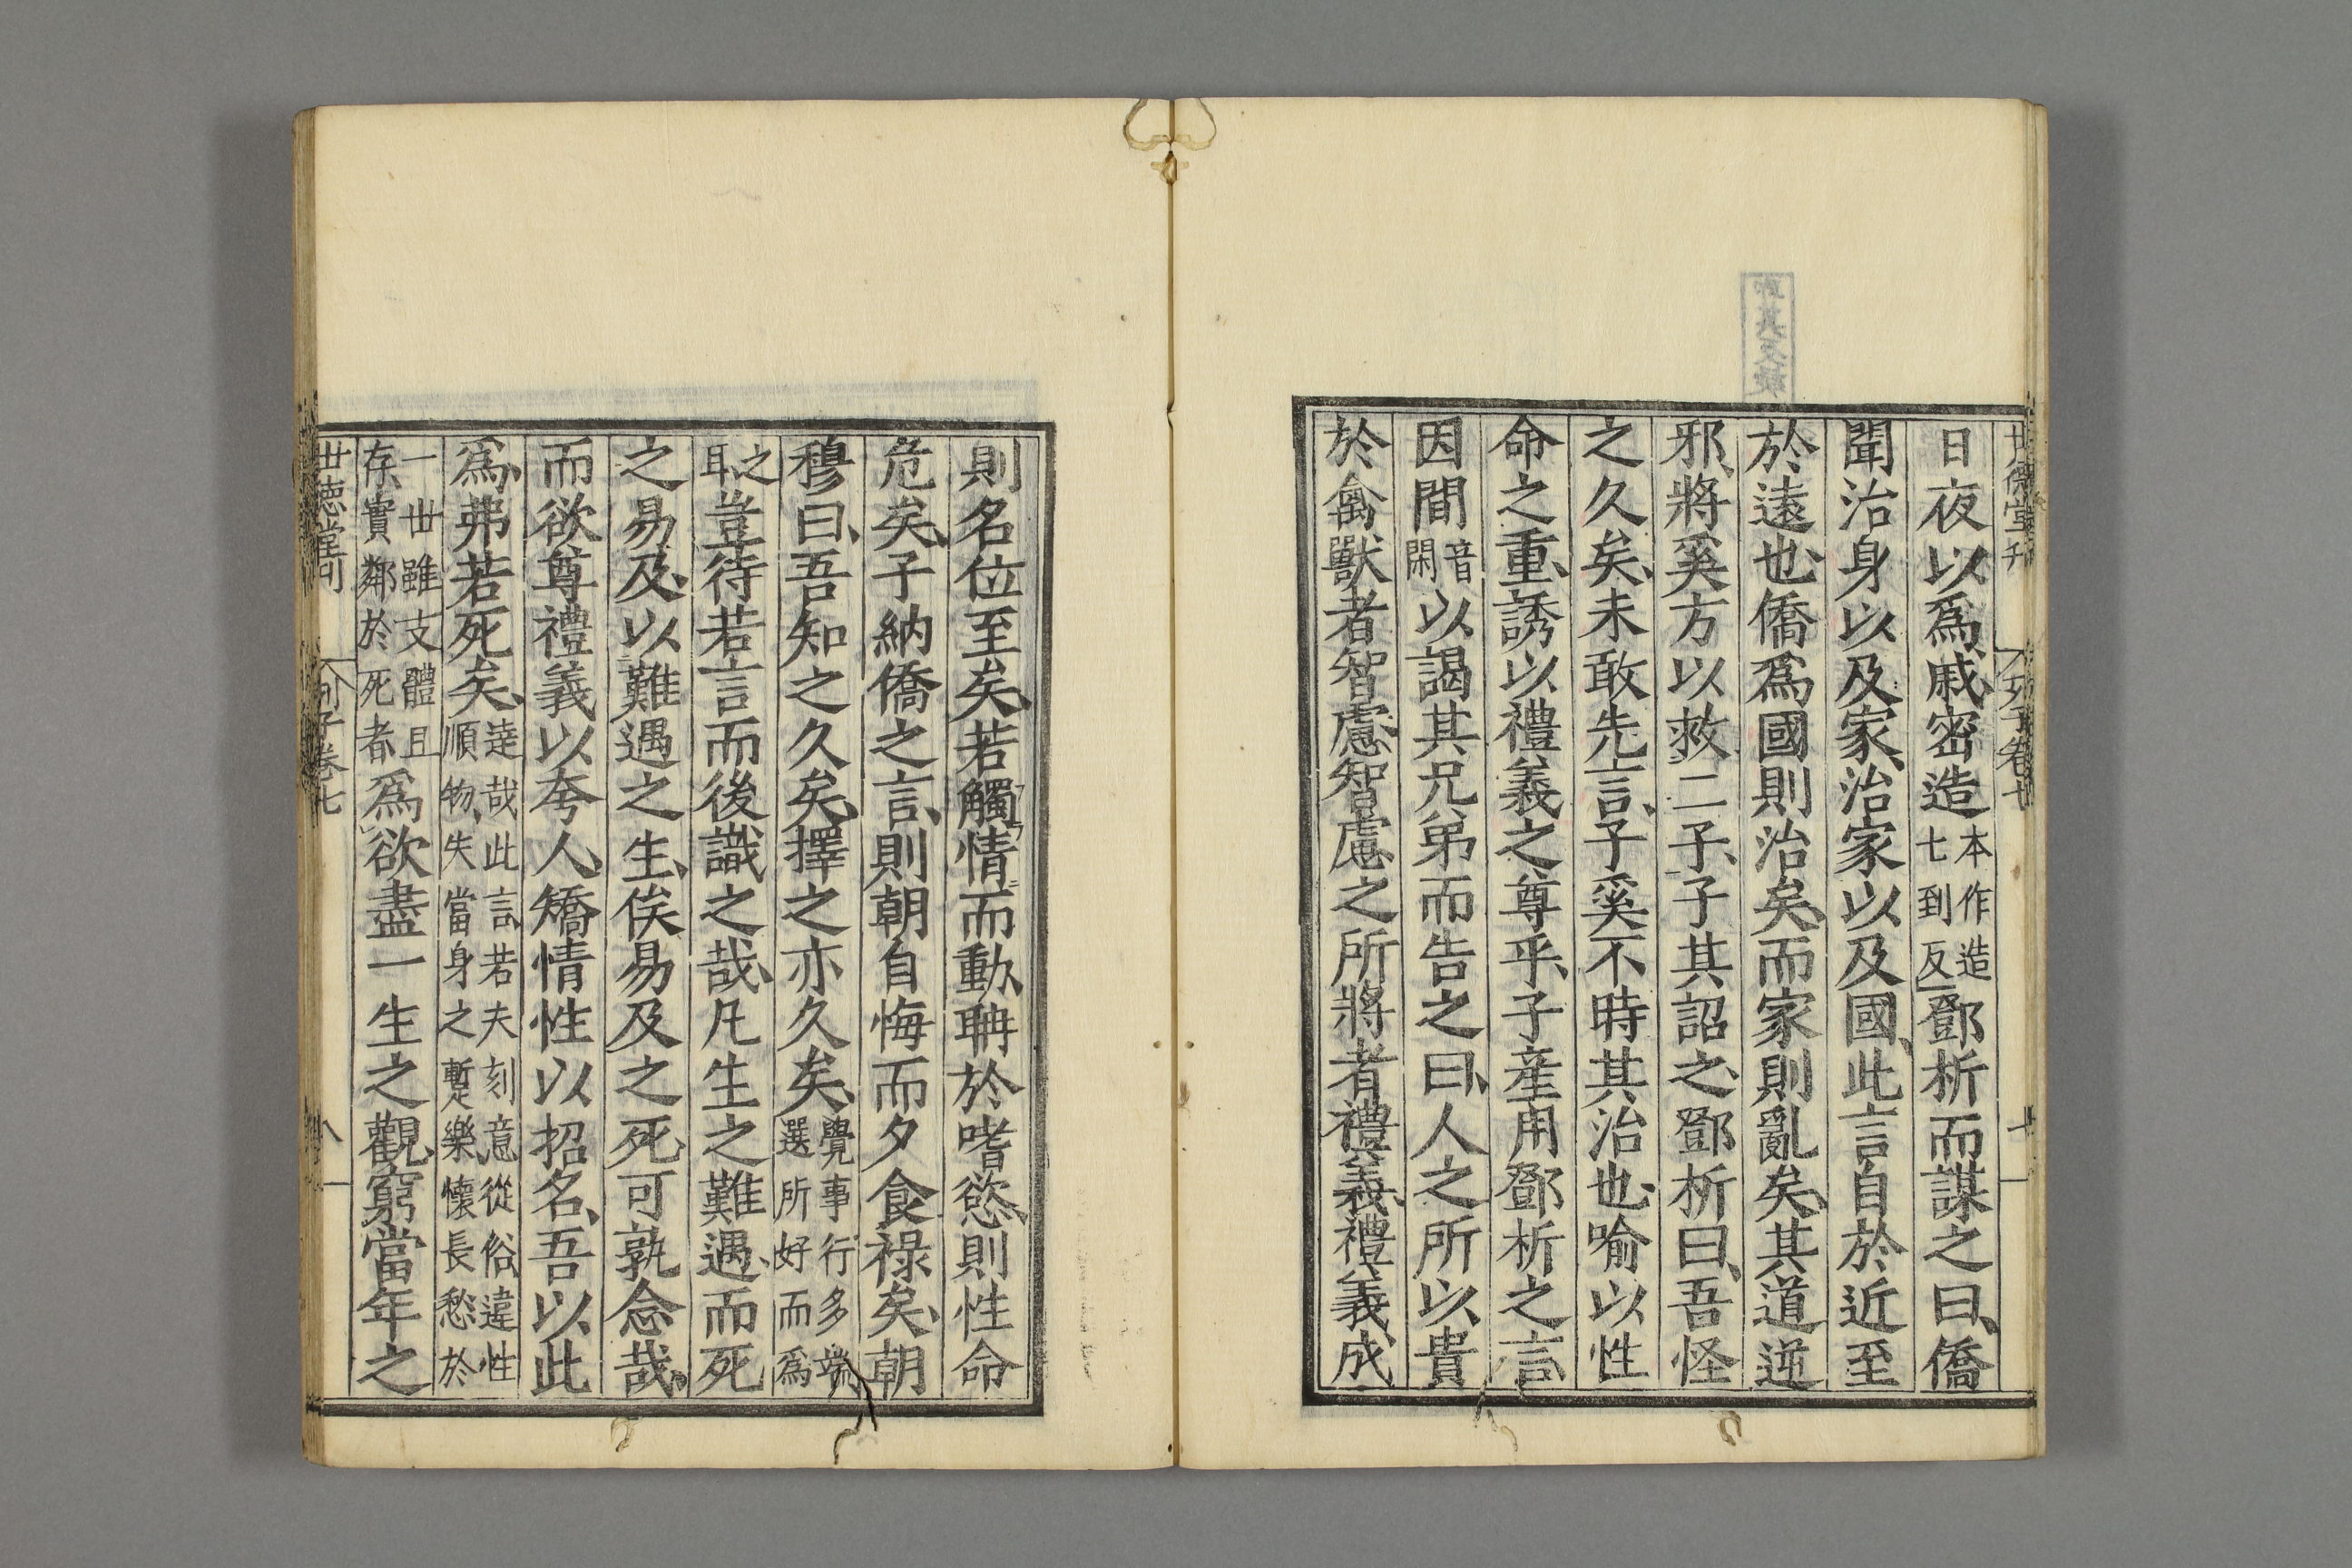 世德堂刊
列子卷七
七
日夜以爲戚密造本作造七到反鄧析而謀之曰僑
聞治身以及家治家以及國此言自於近至
於遠也僑爲國則治矣而家則亂矣其道逆
邪將奚方以救二子子其詔之鄧析曰吾怪
之久矣未敢先言子奚不時其治也喻以性
命之重誘以禮義之尊乎子產用鄧析之言
因間音閑以謁其兄弟而告之曰人之所以貴
於禽獸者智慮智慮之所將者禮義禮義成
則名位至矣若觸情而動聃於嗜慾則性命
危矣子納僑之言則朝自悔而夕食祿矣朝
穆曰吾知之久矣擇之亦久矣覺事行多端選所好而爲
之耳豈待若言而後識之哉凡生之難遇而死
之易及以難遇之生俟易及之死可孰念哉
而欲尊禮義以夸人矯情性以招名吾以此
爲弗若死矣達哉此言若夫刻意從俗違性順物失當身之暫樂懷長愁於
一世雖支體且存實鄰於死者爲欲盡一生之觀窮當年之
世德堂刊
列子卷七
八